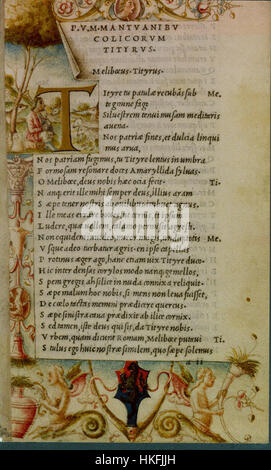 P. V. M. MANTVANI BV
COLICORVM
TITYRVS.
Meliboeus. Tityrus.
Tityre tu patulæ recubans sub Me.
tegmine fagi
Siluestrem tenui musam meditaris
auena.
Nos patriæ fines, et dulcia linqui
mus arua,
Nos patriam fugimus, tu Tityre lentus in umbra
Formosam resonare doces Amaryllida syluas.
O Meliboee, deus nobis hæc ocia fecit. Ti.
Nanque erit ille mihi semper deus, illius aram
Sæpe tener nostris ab ouilibus imbuet agnus.
Ille meas errare boues, ut cernis, et ipsum
Ludere, quæ uellem, calamo permisit agresti.
Non equidem inuideo, miror magis, undique totis Me
Vsque adeo turbatur agris. en ipse capellas
Protinus æger ago, hanc etiam uix Tityre duco.
Hic inter densas corylos modo nanque gemellos,
Spem gregis ah silice in nuda connixa reliquit.
Sæpe malum hoc nobis, si mens non leua fuisset,
De coelo tactas memini prædicere quercus.
Sæpe sinistra caua prædixit ab ilice cornix.
Sed tamen, iste deus qui sit, da Tityre nobis.
Vrbem, quam dicunt Romam, Meliboee putaui Ti.
Stultus ego huic nostræ similem, quo sæpe solemus
a ii
alamy stock photo
HKFJJH